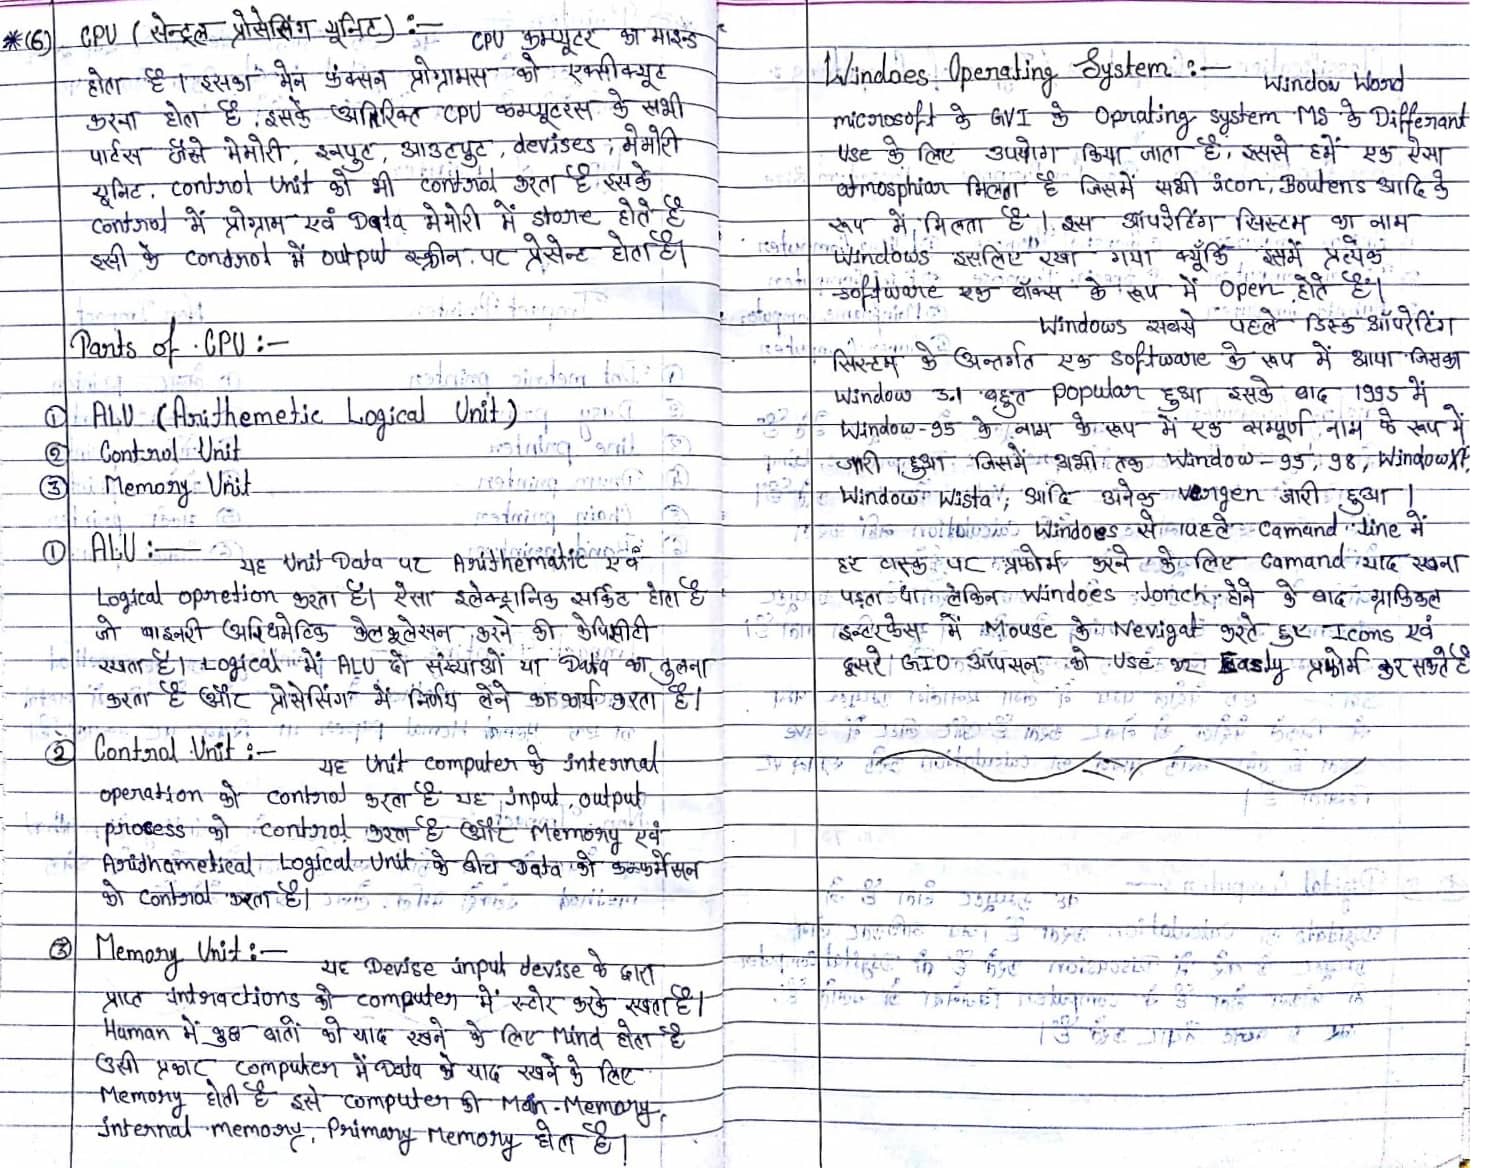 *(6) CPU (सेन्ट्रल प्रोसेसिंग यूनिट) :— CPU कम्प्यूटर का माइन्ड
होता है। इसका मेन फंक्सन प्रोग्रामस को एक्सीक्यूट
करना होता है, इसके अतिरिक्त CPU कम्प्यूटरस के सभी
पार्टस जैसे मेमोरी, इनपुट, आउटपुट, devises, मेमोरी
यूनिट, control Unit को भी control करता है इसके
control में प्रोग्राम एवं Data मेमोरी में store होते है
इसी के control में output स्क्रीन पर प्रेसेन्ट होता है।
Parts of CPU :—
① ALU (Arithemetic Logical Unit)
② Control Unit
③ Memory Unit
① ALU :— यह Unit Data पर Arithematic एवं
Logical opretion करता है। ऐसा इलेक्ट्रानिक सर्किट होता है
जो बाइनरी अरिथमेटिक केलकुलेसन करने की केपिसीटी
रखता है। Logical में ALU दो संख्याओं या Data का तुलना
करता है और प्रोसेसिंग में निर्णय लेने का कार्य करता है।
② Control Unit :— यह Unit computer के internal
operation को control करता है यह input, output
process को control करता है और Memory एवं
Arithametical Logical Unit के बीच Data को
को control करता है।
③ Memory Unit :— यह Devise input devise के द्वारा
प्राप्त intractions को computer में स्टोर करके रखता है।
Human में कुछ बातों को याद रखने के लिए Mind होता है
उसी प्रकार computer में Data को याद रखने के लिए
Memory होती है इसे computer की Main-Memory,
internal memory, Primary Memory होता है।
Windoes Operating System :— Window Word
microsoft के GVI के Oprating system MS के Differant
Use के लिए उपयोग किया जाता है, इससे हमें एक ऐसा
atmosphiar मिलता है जिसमें सभी icon, Boutens आदि के
रूप में मिलता है। इस ऑपरेटिंग सिस्टम का नाम
windows इसलिए रखा गया क्यूँकि इसमें प्रत्येक
software एक बॉक्स के रूप में open होते है।
Windows सबसे पहले डिस्क ऑपरेटिंग
सिस्टम के अन्तर्गत एक software के रूप में आया जिसका
Window 3.1 बहुत popular हुआ इसके बाद 1995 में
Window-95 के नाम के रूप में एक सम्पूर्ण नाम के रूप में
जारी हुआ जिसमें अभी तक Window-95, 98, WindowXP,
Window Wista, आदि अनेक vergen जारी हुआ।
Windoes से पहले Camand line में
हर टास्क पर प्रफोर्म करने के लिए Camand याद रखना
पड़ता था लेकिन Windoes lonch होने के बाद ग्राफिकल
इन्टरफेस में Mouse के Nevigat करते हुए Icons एवं
दूसरे GIO ऑपसन को Use कर Easly प्रफोर्म कर सकते है